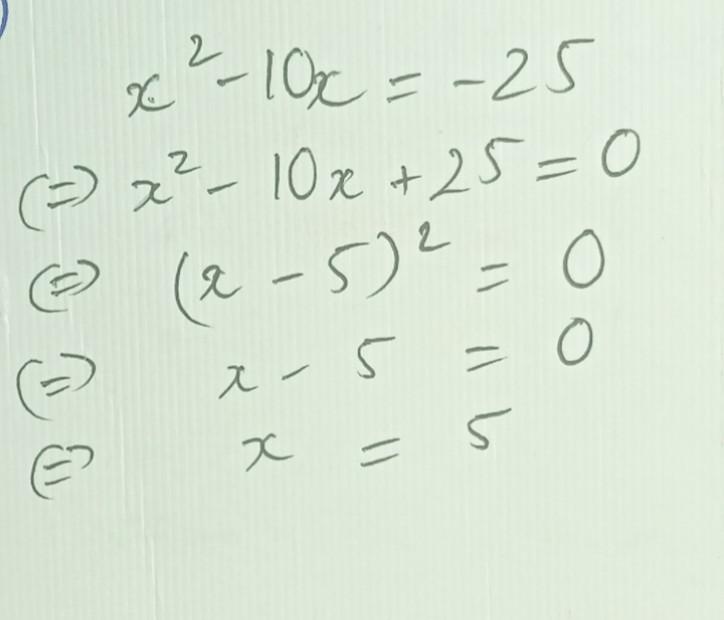 x² - 10x = -25
(=) x² - 10x + 25 = 0
(=) (x - 5)² = 0
(=) x - 5 = 0
(=) x = 5